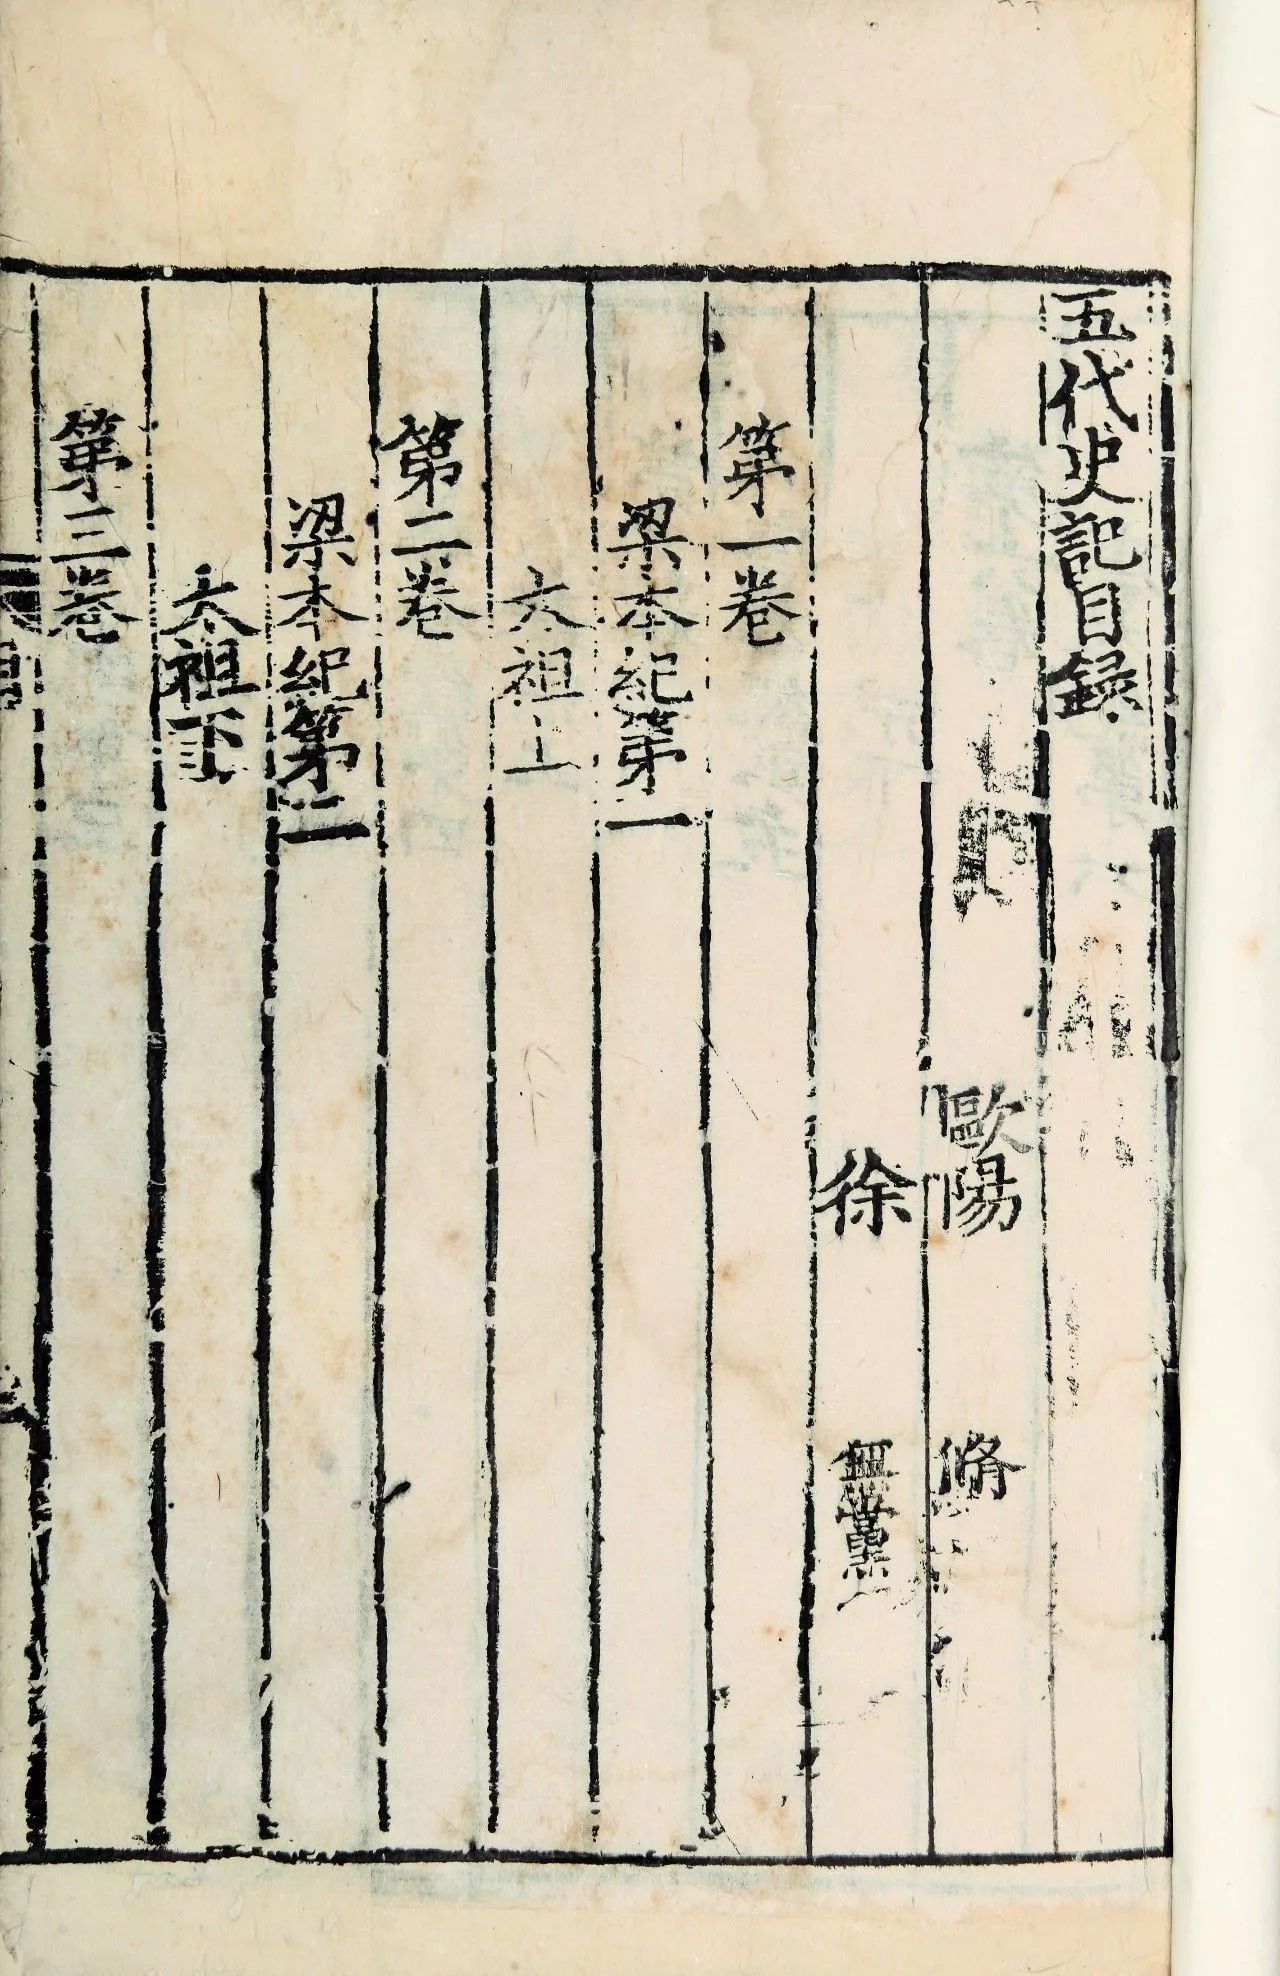 五代史記目録
歐陽 脩
徐 無黨
第一卷
梁本紀第一
太祖上
第二卷
梁本紀第二
太祖下
第三卷